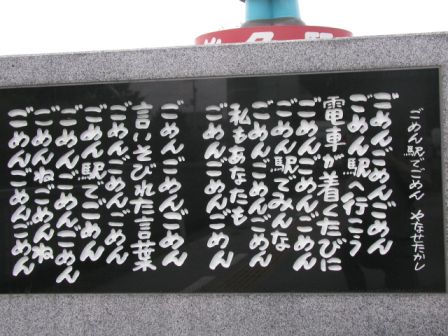 ごめん駅でごめん　やなせたかし
ごめんごめんごめん
ごめん駅へ行こう
電車が着くたびに
ごめん駅でみんな
ごめんごめんごめん
私もあなたも
ごめんごめんごめん
ごめんごめんごめん
言いそびれた言葉
ごめんごめんごめん
ごめん駅でごめん
ごめんごめんごめん
ごめんねごめんね
ごめんごめんごめん